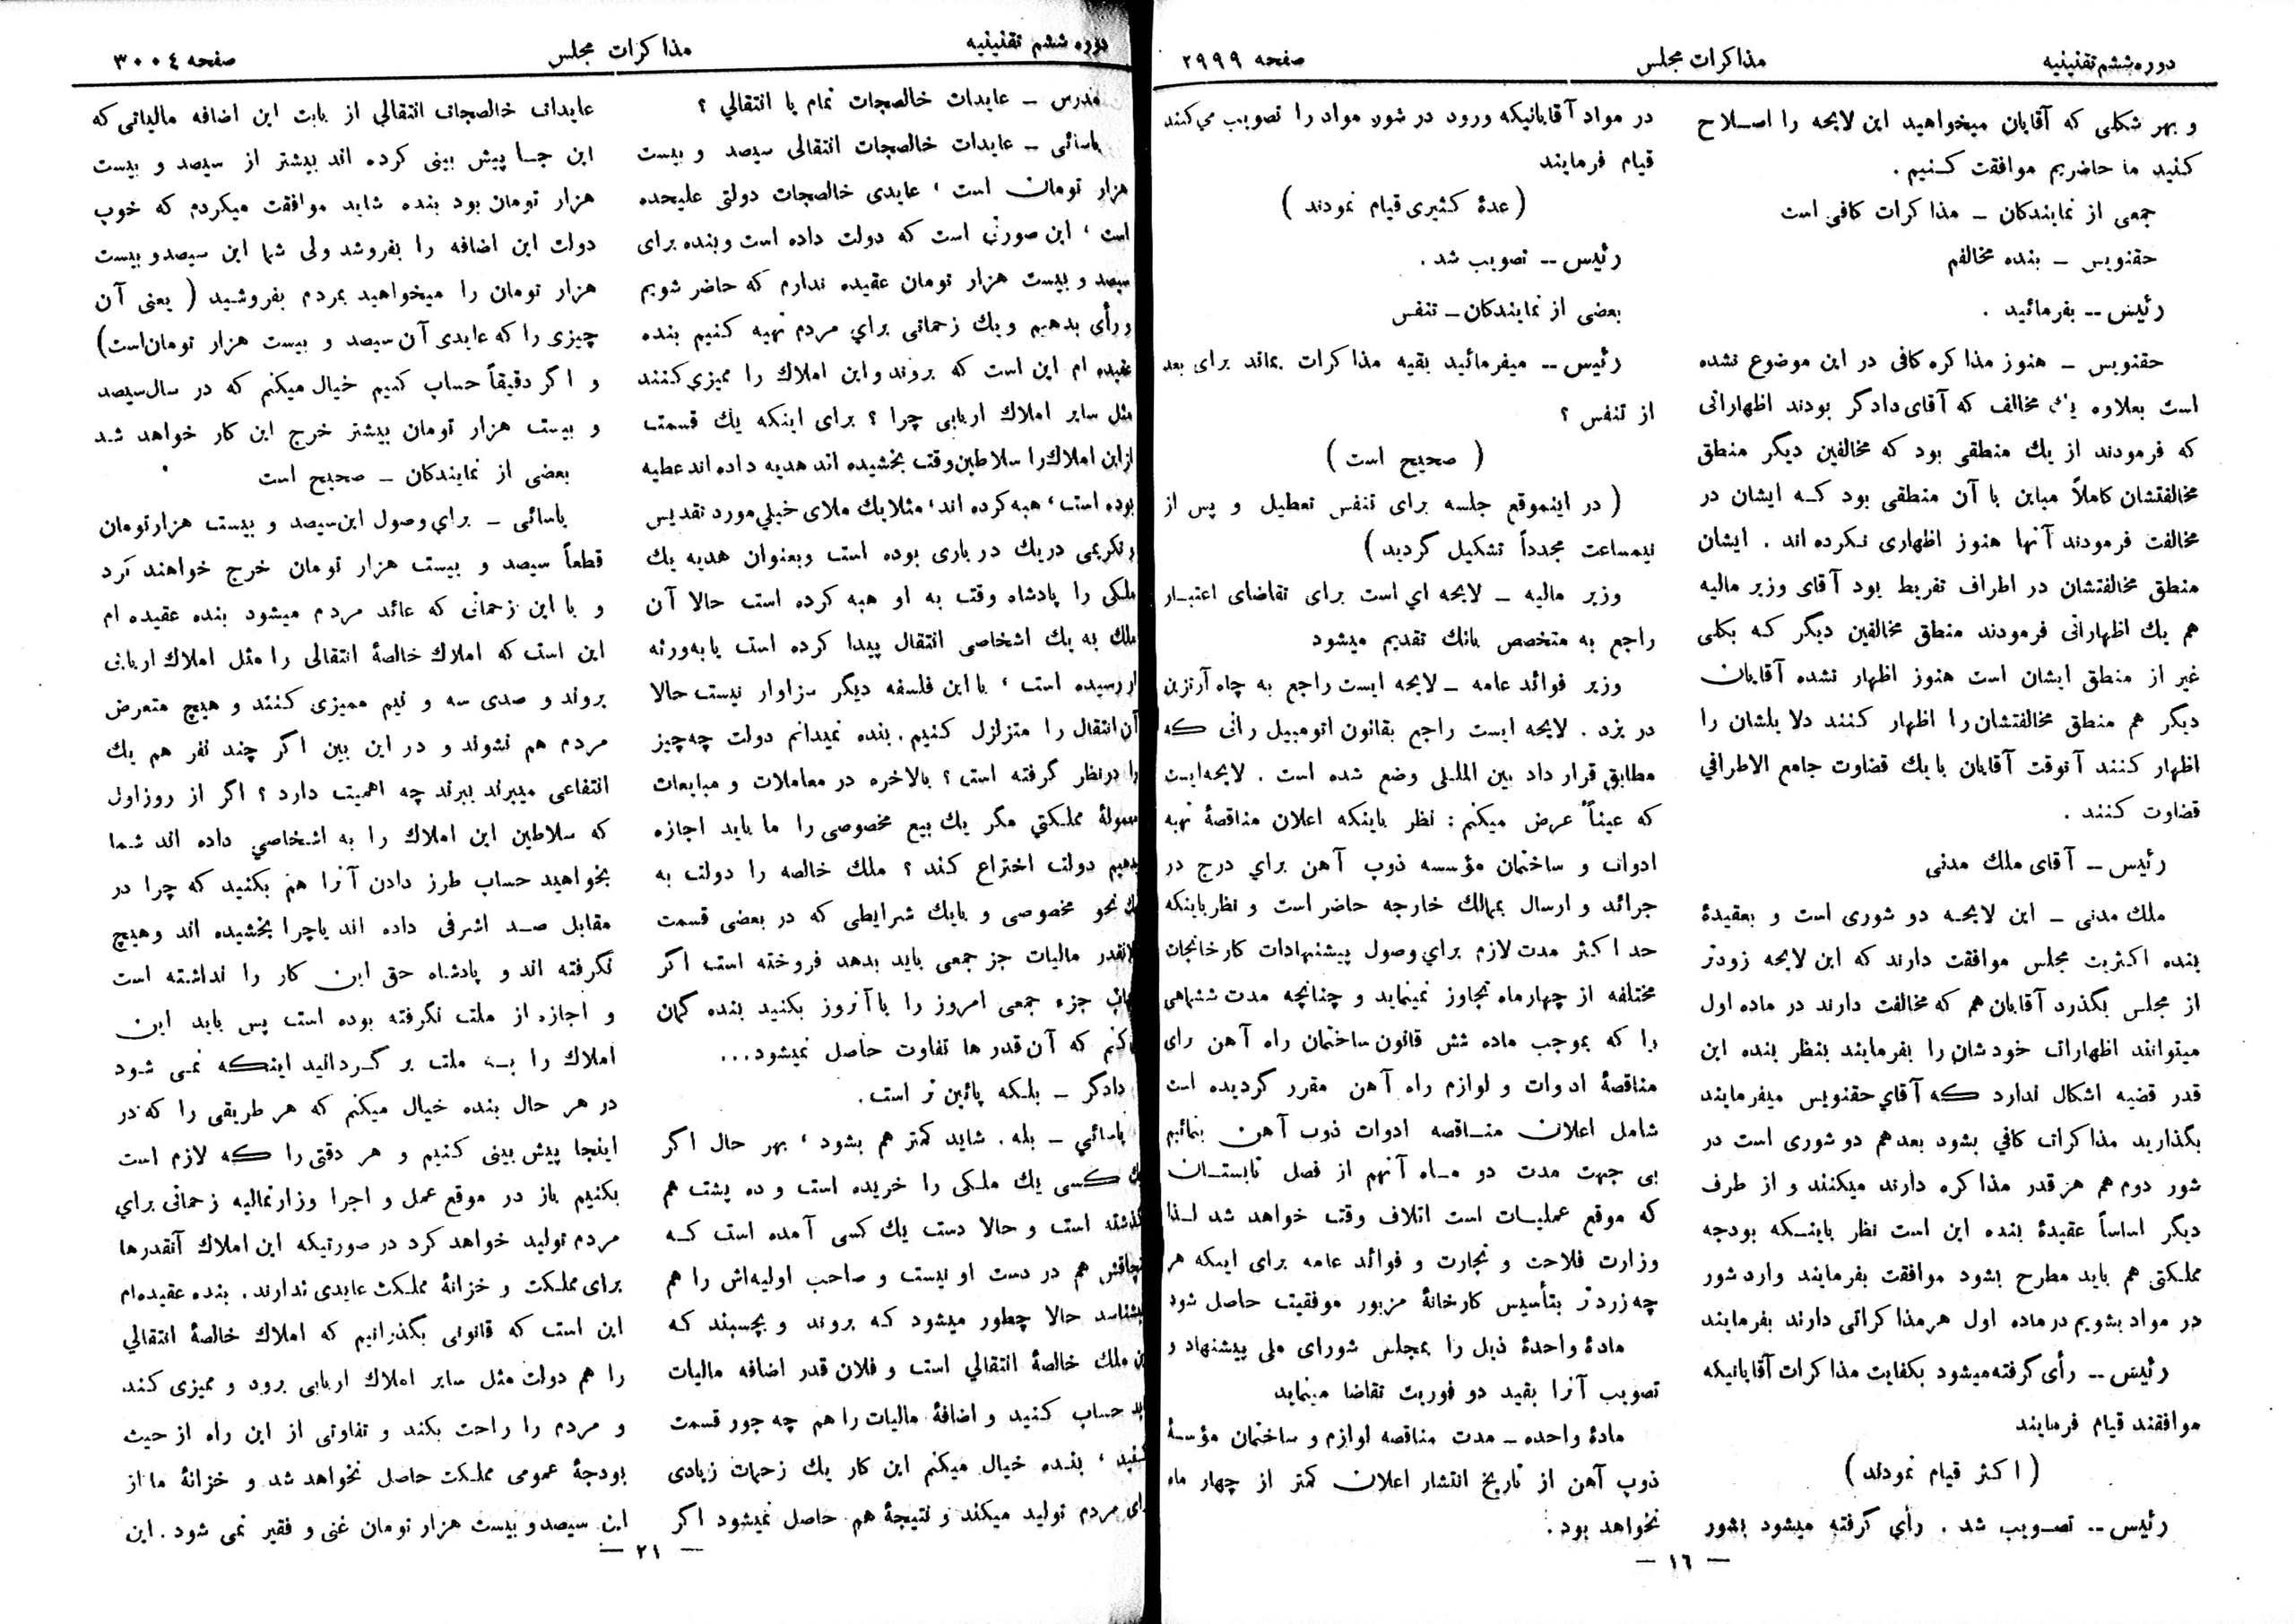 دوره ششم تقنینیه
مذاکرات مجلس
صفحه ۲۹۹۹
و بهر شکلی که آقایان میخواهید این لایحه را اصلاح
کنید ما حاضریم موافقت کنیم .
جمعی از نمایندکان – مذاکرات کافی است
حقنویس – بنده مخالفم
رئیس -- بفرمائید .
حقنویس – هنوز مذاکره کافی در این موضوع نشده
است بعلاوه یک مخالف که آقای دادکر بودند اظهاراتی
که فرمودند از یك منطقی بود که مخالفین دیگر منطق
مخالفتشان کاملاً مباین با آن منطقی بود که ایشان در
مخالفت فرمودند آنها هنوز اظهاری نکرده اند . ایشان
منطق مخالفتشان در اطراف تفریط بود آقای وزیر مالیه
هم یك اظهاراتی فرمودند منطق مخالفین دیگر که بکلی
غیر از منطق ایشان است هنوز اظهار نشده آقایان
دیگر هم منطق مخالفتشان را اظهار کنند دلایلشان را
اظهار کنند آنوقت آقایان با یك قضاوت جامع الاطرافي
قضاوت کنند .
رئیس – آقای ملك مدنی
ملك مدنی – این لایحه دو شوری است و بعقیدۀ
بنده اکثریت مجلس موافقت دارند که این لایحه زودتر
از مجلس بگذرد آقایان هم که مخالفت دارند در ماده اول
میتوانند اظهارات خودشان را بفرمایند بنظر بنده این
قدر قضیه اشکال ندارد که آقاي حقنویس میفرمایند
بگذارید مذاکرات کافي بشود بعد هم دو شوری است در
شور دوم هم هر قدر مذاکره دارند میکنند و از طرف
دیگر اساساً عقیدۀ بنده این است نظر باینکه بودجه
مملکتی هم باید مطرح بشود موافقت بفرمایند وارد شور
در مواد بشویم در ماده اول هر مذاکراتی دارند بفرمایند
رئیس -- رأی گرفته میشود بکفایت مذاکرات آقایانیکه
موافقند قیام فرمایند
( اکثر قیام نمودند )
رئیس -- تصویب شد . رأي گرفته میشود بشور
در مواد آقایانیکه ورود در شور مواد را تصویب می‌کنند
قیام فرمایند
( عدۀ کثیری قیام نمودند )
رئیس -- تصویب شد .
بعضی از نمایندکان – تنفس
رئیس -- میفرمائید بقیه مذاکرات بماند برای بعد
از تنفس ؟
( صحیح است )
( در اینموقع جلسه برای تنفس تعطیل و پس از
نیمساعت مجدداً تشکیل گردید )
وزیر مالیه – لایحه اي است برای تقاضای اعتبار
راجع به متخصص بانك تقدیم میشود
وزیر فوائد عامه – لایحه ایست راجع به چاه آرتزین
در یزد . لایحه ایست راجع بقانون اتومبیل رانی که
مطابق قرار داد بین المللی وضع شده است . لایحه ایست
که عیناً عرض میکنم : نظر باینکه اعلان مناقصۀ تهیه
ادوات و ساختمان مؤسسه ذوب آهن براي درج در
جرائد و ارسال بممالك خارجه حاضر است و نظر باینکه
حد اکثر مدت لازم براي وصول پیشنهادات کارخانجان
مختلفه از چهار ماه تجاوز نمینماید و چنانچه مدت ششماهی
را که بموجب ماده شش قانون ساختمان راه آهن رای
مناقصۀ ادوات و لوازم راه آهن مقرر گردیده است
شامل اعلان مناقصه ادوات ذوب آهن بنمائیم
بی جهت مدت دو ماه آنهم از فصل تابستان
که موقع عملیات است اتلاف وقت خواهد شد لذا
وزارت فلاحت و تجارت و فوائد عامه برای اینکه هر
چه زردتر بتأسیس کارخانۀ مزبور موفقیت حاصل شود
مادۀ واحدۀ ذیل را بمجلس شورای ملی پیشنهاد و
تصویب آنرا بقید دو فوریت تقاضا مینماید
مادۀ واحده – مدت مناقصه لوازم و ساختمان مؤسسۀ
ذوب آهن از تاریخ انتشار اعلان کمتر از چهار ماه
نخواهد بود .
– ۱٦ –
دوره ششم تقنینیه
مذاکرات مجلس
صفحه ۳۰۰٤
مدرس – عایدات خالصجات تمام یا انتقالي ؟
یاسائی – عایدات خالصجات انتقالی سیصد و بیست
هزار تومان است ، عایدی خالصجات دولتی علیحده
است ، این صورتی است که دولت داده است و بنده برای
سیصد و بیست هزار تومان عقیده ندارم که حاضر شویم
و رأی بدهیم و یك زحماتی براي مردم تهیه کنیم بنده
عقیده ام این است که بروند و این املاك را ممیزي کنند
مثل سایر املاك اربابی چرا ؟ برای اینکه یك قسمت
از این املاك را سلاطین وقت بخشیده اند هدیه داده اند عطیه
بوده است ، هبه کرده اند ، مثلا یك ملای خیلي مورد تقدیس
و تکریمی در یك درباری بوده است و بعنوان هدیه یك
ملکی را پادشاه وقت به او هبه کرده است حالا آن
ملك به یك اشخاصی انتقال پیدا کرده است یا به ورثه
او رسیده است ، با این فلسفه دیگر سزاوار نیست حالا
آن انتقال را متزلزل کنیم . بنده نمیدانم دولت چه چیز
را در نظر گرفته است ؟ بالاخره در معاملات و مبایعات
معمولۀ مملکتي مگر یك بیع مخصوصی را ما باید اجازه
بدهیم دولت اختراع کند ؟ ملك خالصه را دولت به
یك نحو مخصوصی و با یك شرایطی که در بعضی قسمت
مالیات جز جمعی باید بدهد فروخته است اکر
جزء جمعی امروز را با آنروز بکنید بنده کمان
که آن قدر ها تفاوت حاصل نمیشود...
دادکر – بلکه پائین تر است .
یاسائي – بله . شاید کمتر هم بشود ، بهر حال اکر
یك کسی یك ملکی را خریده است و ده پشت هم
گذشته است و حالا دست یك کسی آمده است که
هم در دست او نیست و صاحب اولیه‌اش را هم
حالا چطور میشود که بروند و بچسبند که
این ملك خالصۀ انتقالي است و فلان قدر اضافه مالیات
حساب کنید و اضافۀ مالیات را هم چه جور قسمت
کنید ، بنده خیال میکنم این کار یك زحمات زیادی
برای مردم تولید میکند و نتیجۀ هم حاصل نمیشود اکر
عایدات خالصجات انتقالي از بابت این اضافه مالیاتی که
این جا پیش بینی کرده اند بیشتر از سیصد و بیست
هزار تومان بود بنده شاید موافقت میکردم که خوب
دولت این اضافه را بفروشد ولی شما این سیصد و بیست
هزار تومان را میخواهید بمردم بفروشید ( یعنی آن
چیزی را که عایدی آن سیصد و بیست هزار تومان است )
و اکر دقیقاً حساب کنیم خیال میکنم که در سال سیصد
و بیست هزار تومان بیشتر خرج این کار خواهد شد
بعضی از نمایندکان – صحیح است
یاسائی – براي وصول این سیصد و بیست هزار تومان
قطعاً سیصد و بیست هزار تومان خرج خواهند کرد
و با این زحماتی که عائد مردم میشود بنده عقیده ام
این است که املاك خالصۀ انتقالی را مثل املاك اربابی
بروند و صدی سه و نیم ممیزی کنند و هیچ متعرض
مردم هم نشوند و در این بین اکر چند نفر هم یك
انتفاعی میبرند ببرند چه اهمیت دارد ؟ اکر از روز اول
که سلاطین این املاك را به اشخاصي داده اند شما
بخواهید حساب طرز دادن آنرا هم بکنید که چرا در
مقابل صد اشرفی داده اند یا چرا بخشیده اند و هیچ
نگرفته اند و پادشاه حق این کار را نداشته است
و اجازه از ملت نگرفته بوده است پس باید این
املاك را به ملت بر گردانید اینکه نمی شود
در هر حال بنده خیال میکنم که هر طریقی را که در
اینجا پیش بینی کنیم و هر دقتی را که لازم است
بکنیم باز در موقع عمل و اجرا وزارتمالیه زحماتی براي
مردم تولید خواهد کرد در صورتیکه این املاك آنقدرها
برای مملکت و خزانۀ مملکت عایدی ندارند . بنده عقیده‌ام
این است که قانونی بگذرانیم که املاك خالصۀ انتقالي
را هم دولت مثل سایر املاك اربابی برود و ممیزی کند
و مردم را راحت بکند و تفاوتی از این راه از حیث
بودجۀ عمومی مملکت حاصل نخواهد شد و خزانۀ ما از
این سیصد و بیست هزار تومان غنی و فقیر نمی شود . این
– ۲۱ –